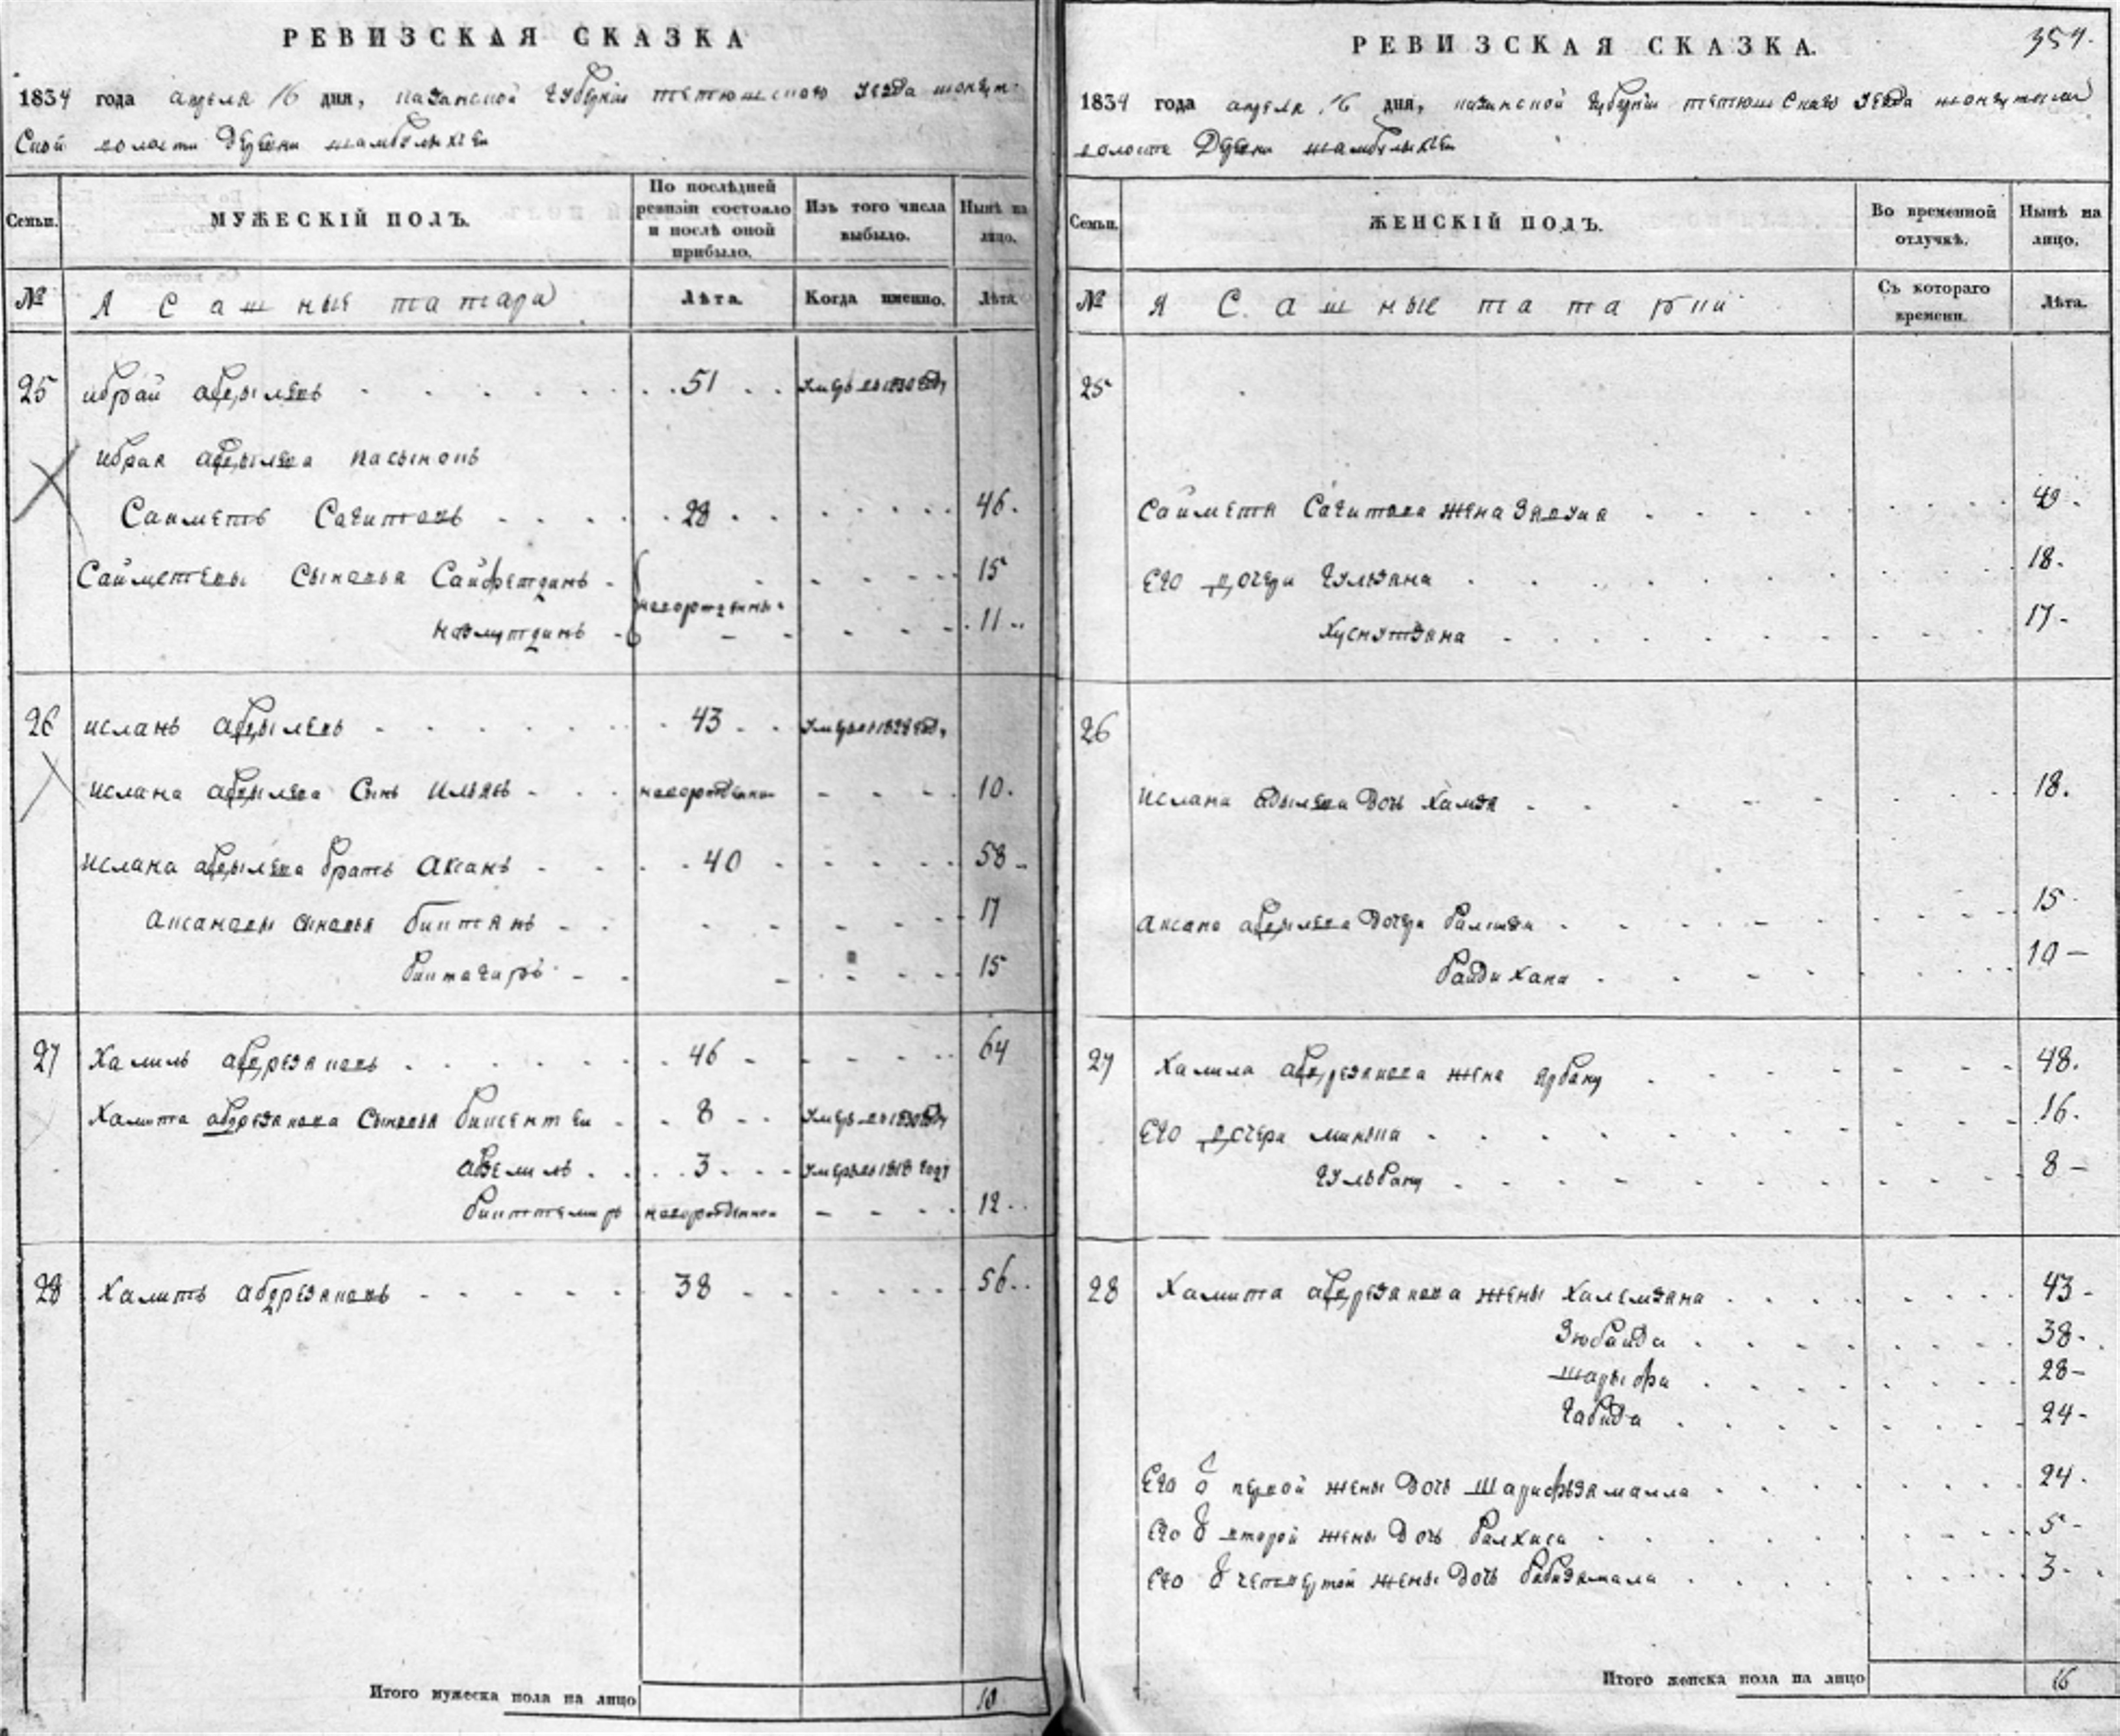 РЕВИЗСКАЯ СКАЗКА
1834 года апреля 16 дня, казанской губернiи тетюшского уезда шонгут-
ской волости Деревни шамбулыхчи
Семьи.
МУЖЕСКІЙ ПОЛЪ.
По послѣдней ревизіи состояло и послѣ оной прибыло.
Изъ того числа выбыло.
Нынѣ на лицо.
№
Ясашные татара
Лѣта.
Когда именно.
Лѣта.
25 ибрай абдылевъ 51 умеръ въ 1830 году
ибрая абдылева пасынокъ
Саиметъ Сагитовъ 28 46
Сайметевы Сыновья Сайфетдинъ 15
новорожденны
11
26 исланъ абдылевъ 43 умеръ въ 1828 году
ислана абдылева Сынъ ильясъ новорожденной 10
ислана абдылева братъ аксанъ 40 58
аксановы сыновья биктянъ 17
биктагиръ 15
27 Халиль абдрезяковъ 46 64
Халита абдрезякова Сыновья биксентеи 8 умеръ въ 1830 году
абзелиль 3 умеръ въ 1818 году
биктемиръ новорожденной 12
28 Халитъ абдрезяковъ 38 56
Итого мужеска пола на лицо 10
РЕВИЗСКАЯ СКАЗКА.
354.
1834 года апреля 16 дня, казанской губернiи тетюшскаго уезда шонгутской
волости Деревни шамбулыхчи
Семьи.
ЖЕНСКІЙ ПОЛЪ.
Во временной отлучкѣ.
Нынѣ на лицо.
№
Ясашные татарки
Съ котораго времени.
Лѣта.
25
Сайметя Сагитова жена Зявуия 40
Его дочери гульзяна 18.
Хуснизяна 17
26
ислана абдылева Дочь Хамдя 18.
аксана абдылева Дочери 15
байдихани 10
27 Халила абдрезякова жена ярбану 48.
Его дочери минкиа 16.
гульбану 8
28 Халита абдрезякова жены Халемзяна 43
Зюбайда 38
шарыфа 28
габида 24
Его о первой жены Дочь Шарифзямалла 24
Его о второй жены Дочь балхиса 5
Его о четвертой жены Дочь бибизямала 3
Итого женска пола на лицо 16